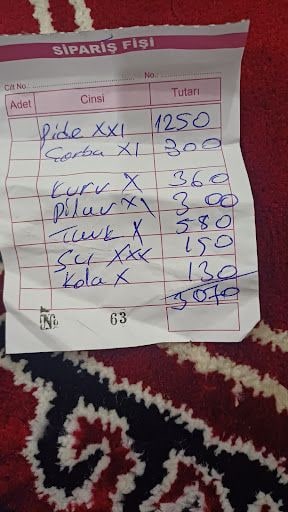 SİPARİŞ FİŞİ
Cilt No.: No.:
Adet Cinsi Tutarı
Pide XXI 1250
Çorba XI 300
Kuru X 360
Pilav XI 300
Tavuk X 580
Su XXX 150
Kola X 130
3070
No 63